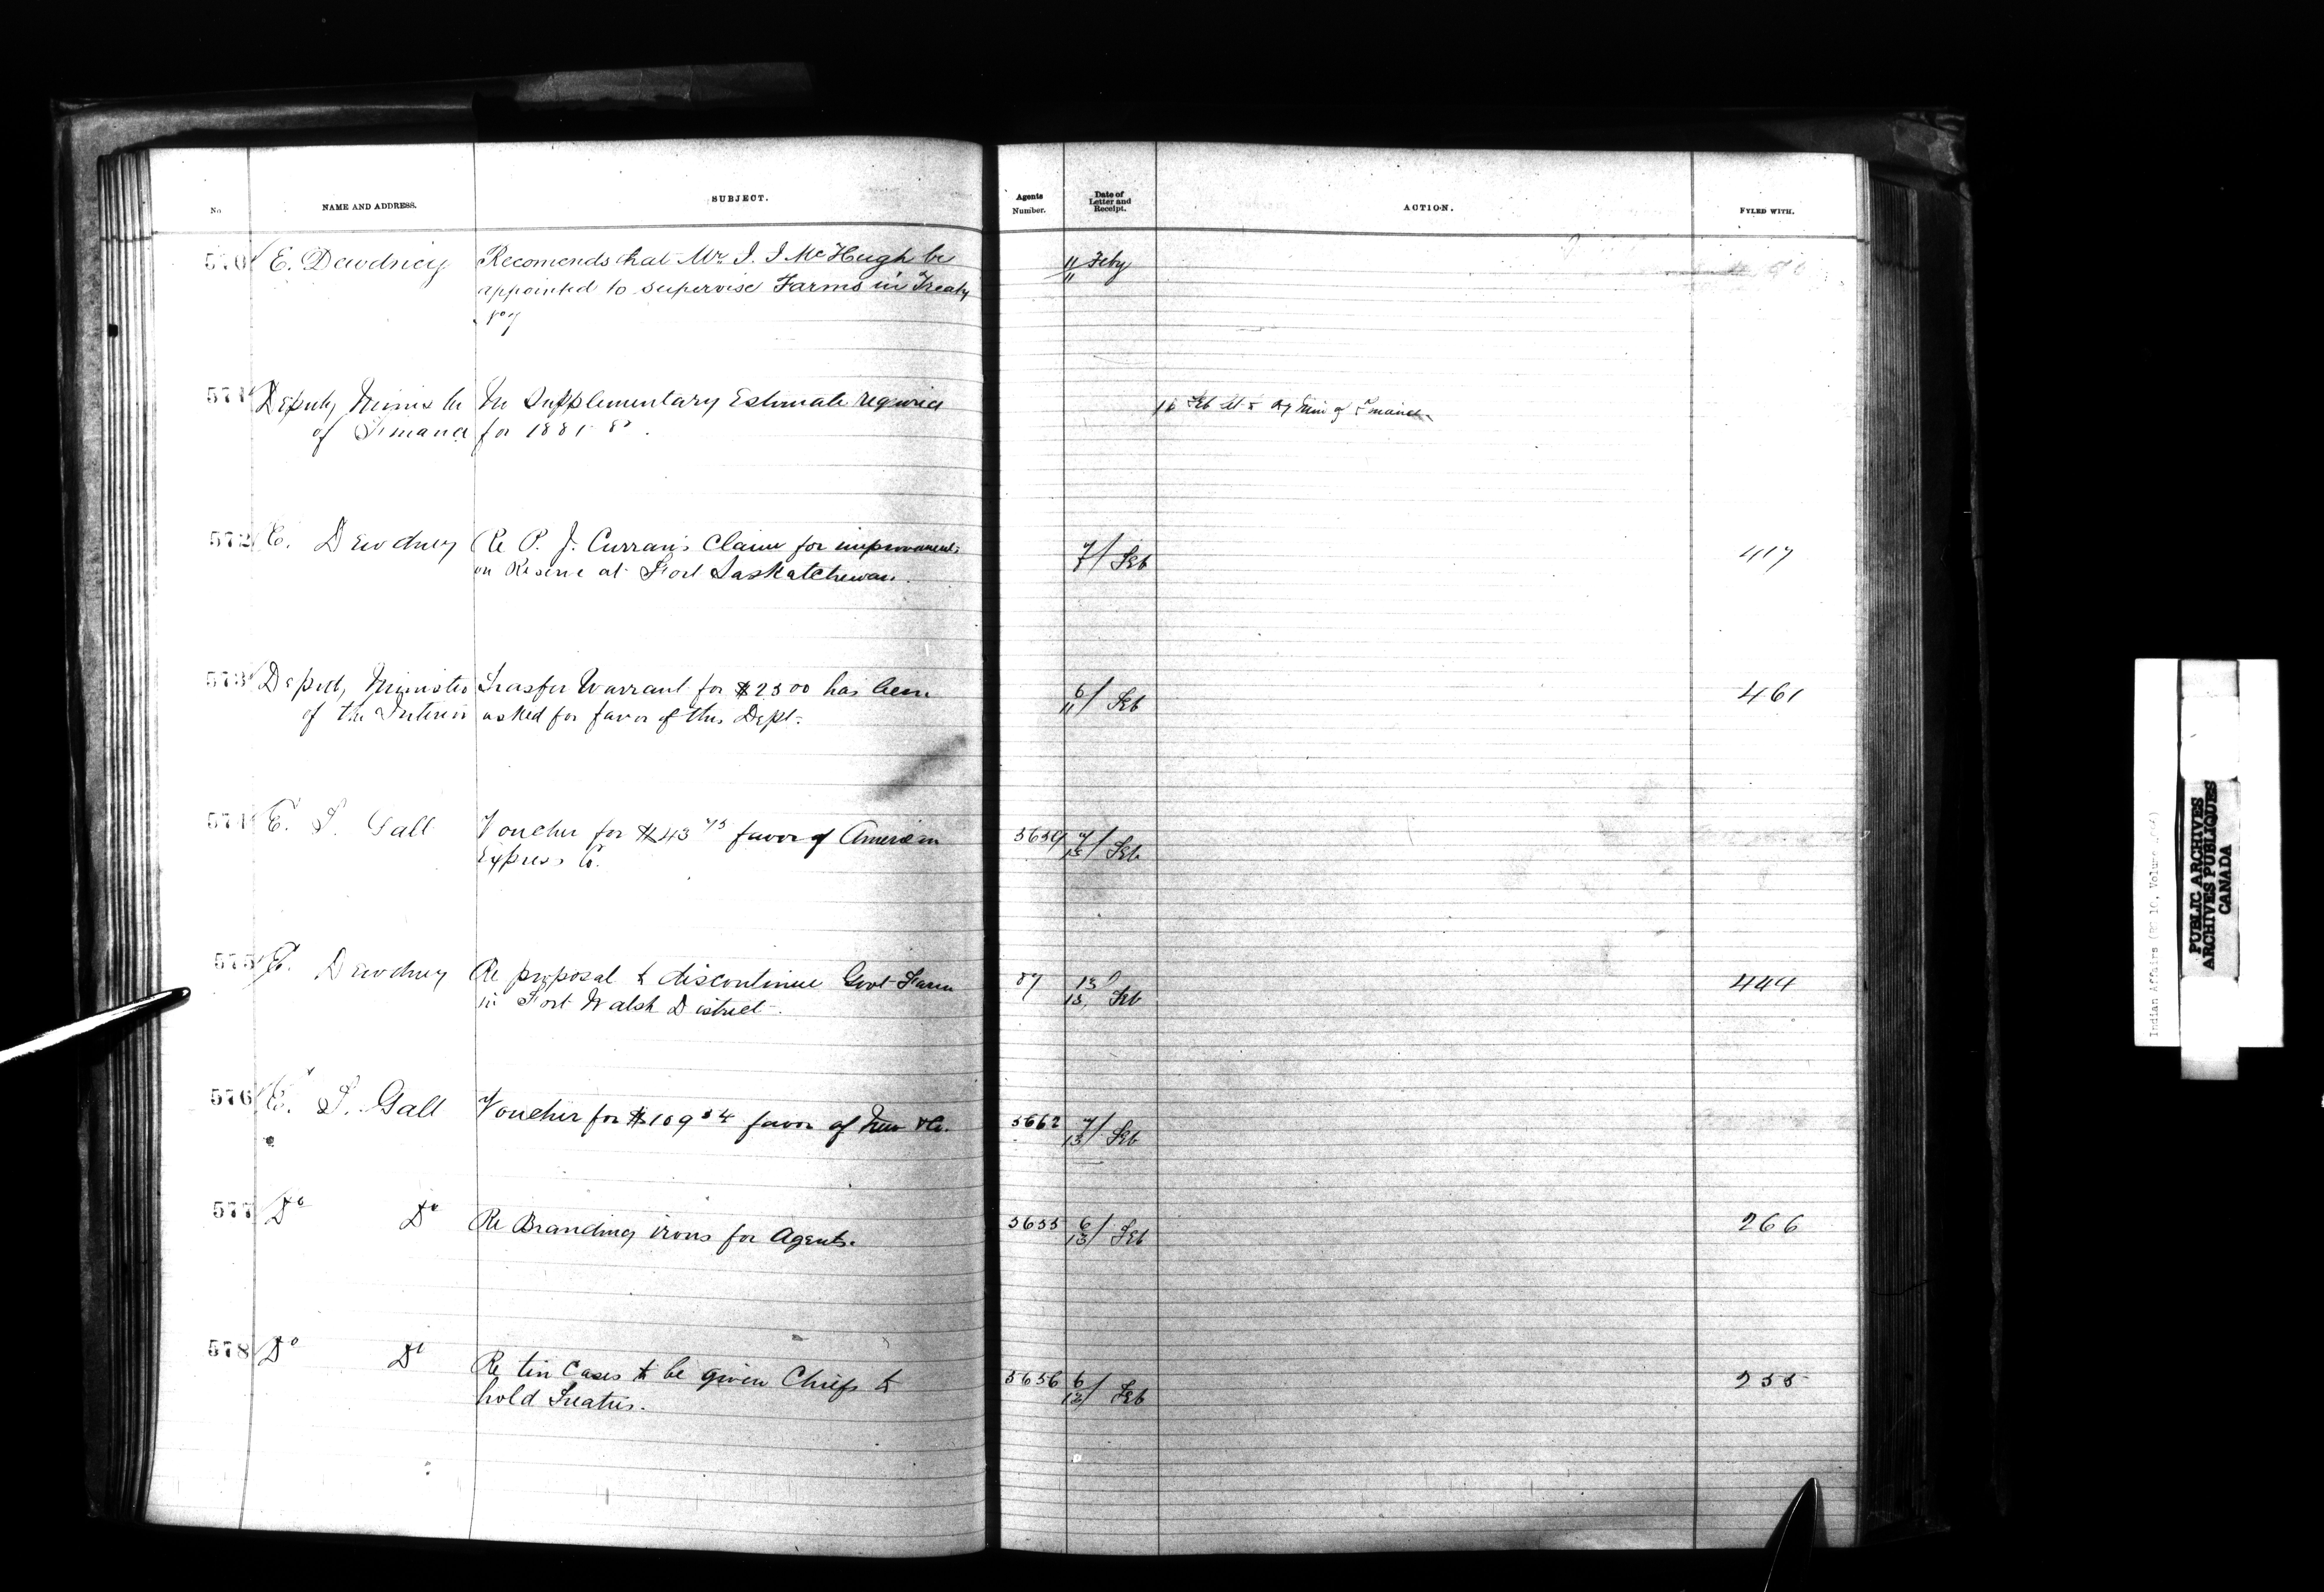 No NAME AND ADDRESS. SUBJECT. Agents Number. Date of Letter and Receipt. ACTION. FYLED WITH.
570 E. Dewdney Recomends that Mr. J. J McHugh be 11/11 Feby
appointed to supervise Farms in Treaty
No 7
571 Deputy Minister In Supplementary Estimate required
of Finance for 1881 82.
572 E. Dewdney Re P. J. Curran's Claim for improvements 7/7 Feb 417
on Reserve at Fort Saskatchewan.
573 Deputy Minister Trasfer Warrant for $2500 has been 6/11 Feb 461
of the Interior asked for favor of this Dept.
574 E. T. Galt Voucher for $43 75 favor of American 5659 7/13 Feb
Express Co.
575 E. Dewdney Re proposal to discontinue Govt Farm 87 13/13 Feb 444
in Fort Walsh District.
576 E. T. Galt Voucher for $109 34 favor of &Co. 5662 7/13 Feb
577 Do Do Re Branding irons for Agents. 5655 6/13 Feb 266
578 Do Do Re tin Cases to be given Chiefs to 5656 6/13 Feb 255
hold Treaties.
Indian Affairs (RG 10, Volume
PUBLIC ARCHIVES
ARCHIVES PUBLIQUES
CANADA